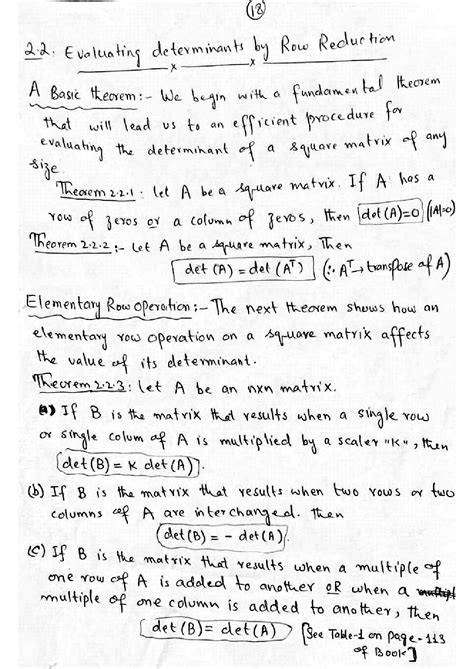 (18)
2.2. Evaluating determinants by Row Reduction
A Basic theorem:- We begin with a fundamental theorem
that will lead us to an efficient procedure for
evaluating the determinant of a square matrix of any
size.
Theorem 2.2.1: let A be a square matrix. If A has a
row of zeros or a column of zeros, then det(A)=0 (|A|=0)
Theorem 2.2.2:- Let A be a square matrix, Then
det (A) = det (Aᵀ) (∵ Aᵀ → transpose of A)
Elementary Row Operation:- The next theorem shows how an
elementary row operation on a square matrix affects
the value of its determinant.
Theorem 2.2.3: let A be an nxn matrix.
(a) If B is the matrix that results when a single row
or single colum of A is multiplied by a scaler "K", then
det(B) = K det(A).
(b) If B is the matrix that results when two rows or two
columns of A are interchanged. then
det(B) = - det(A).
(c) If B is the matrix that results when a multiple of
one row of A is added to another OR when a
multiple of one column is added to another, then
det(B) = det(A) [See Table-1 on page-113
of Book]